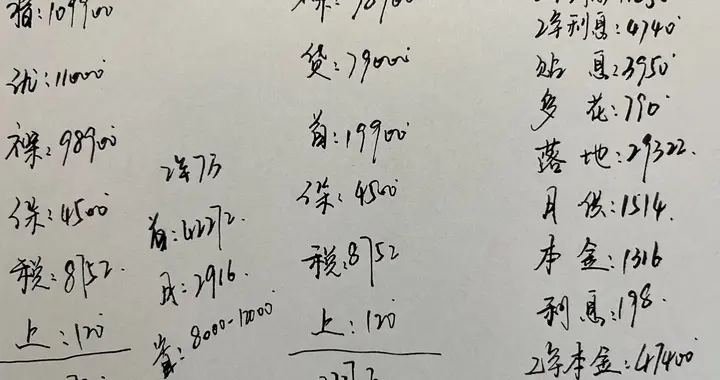 指:109900
优:11000
裸:98900
保:4500
税:8752.
上:120
2年7万
首:42272.
月:2916.
8000-12000
贷:79000
首:19900
保:4500
税:8752
上:120
2年利息:4740
贴息:3950
多花:790
落地:29322.
月供:1514.
本金:1316
利息:198.
2年本金:47400